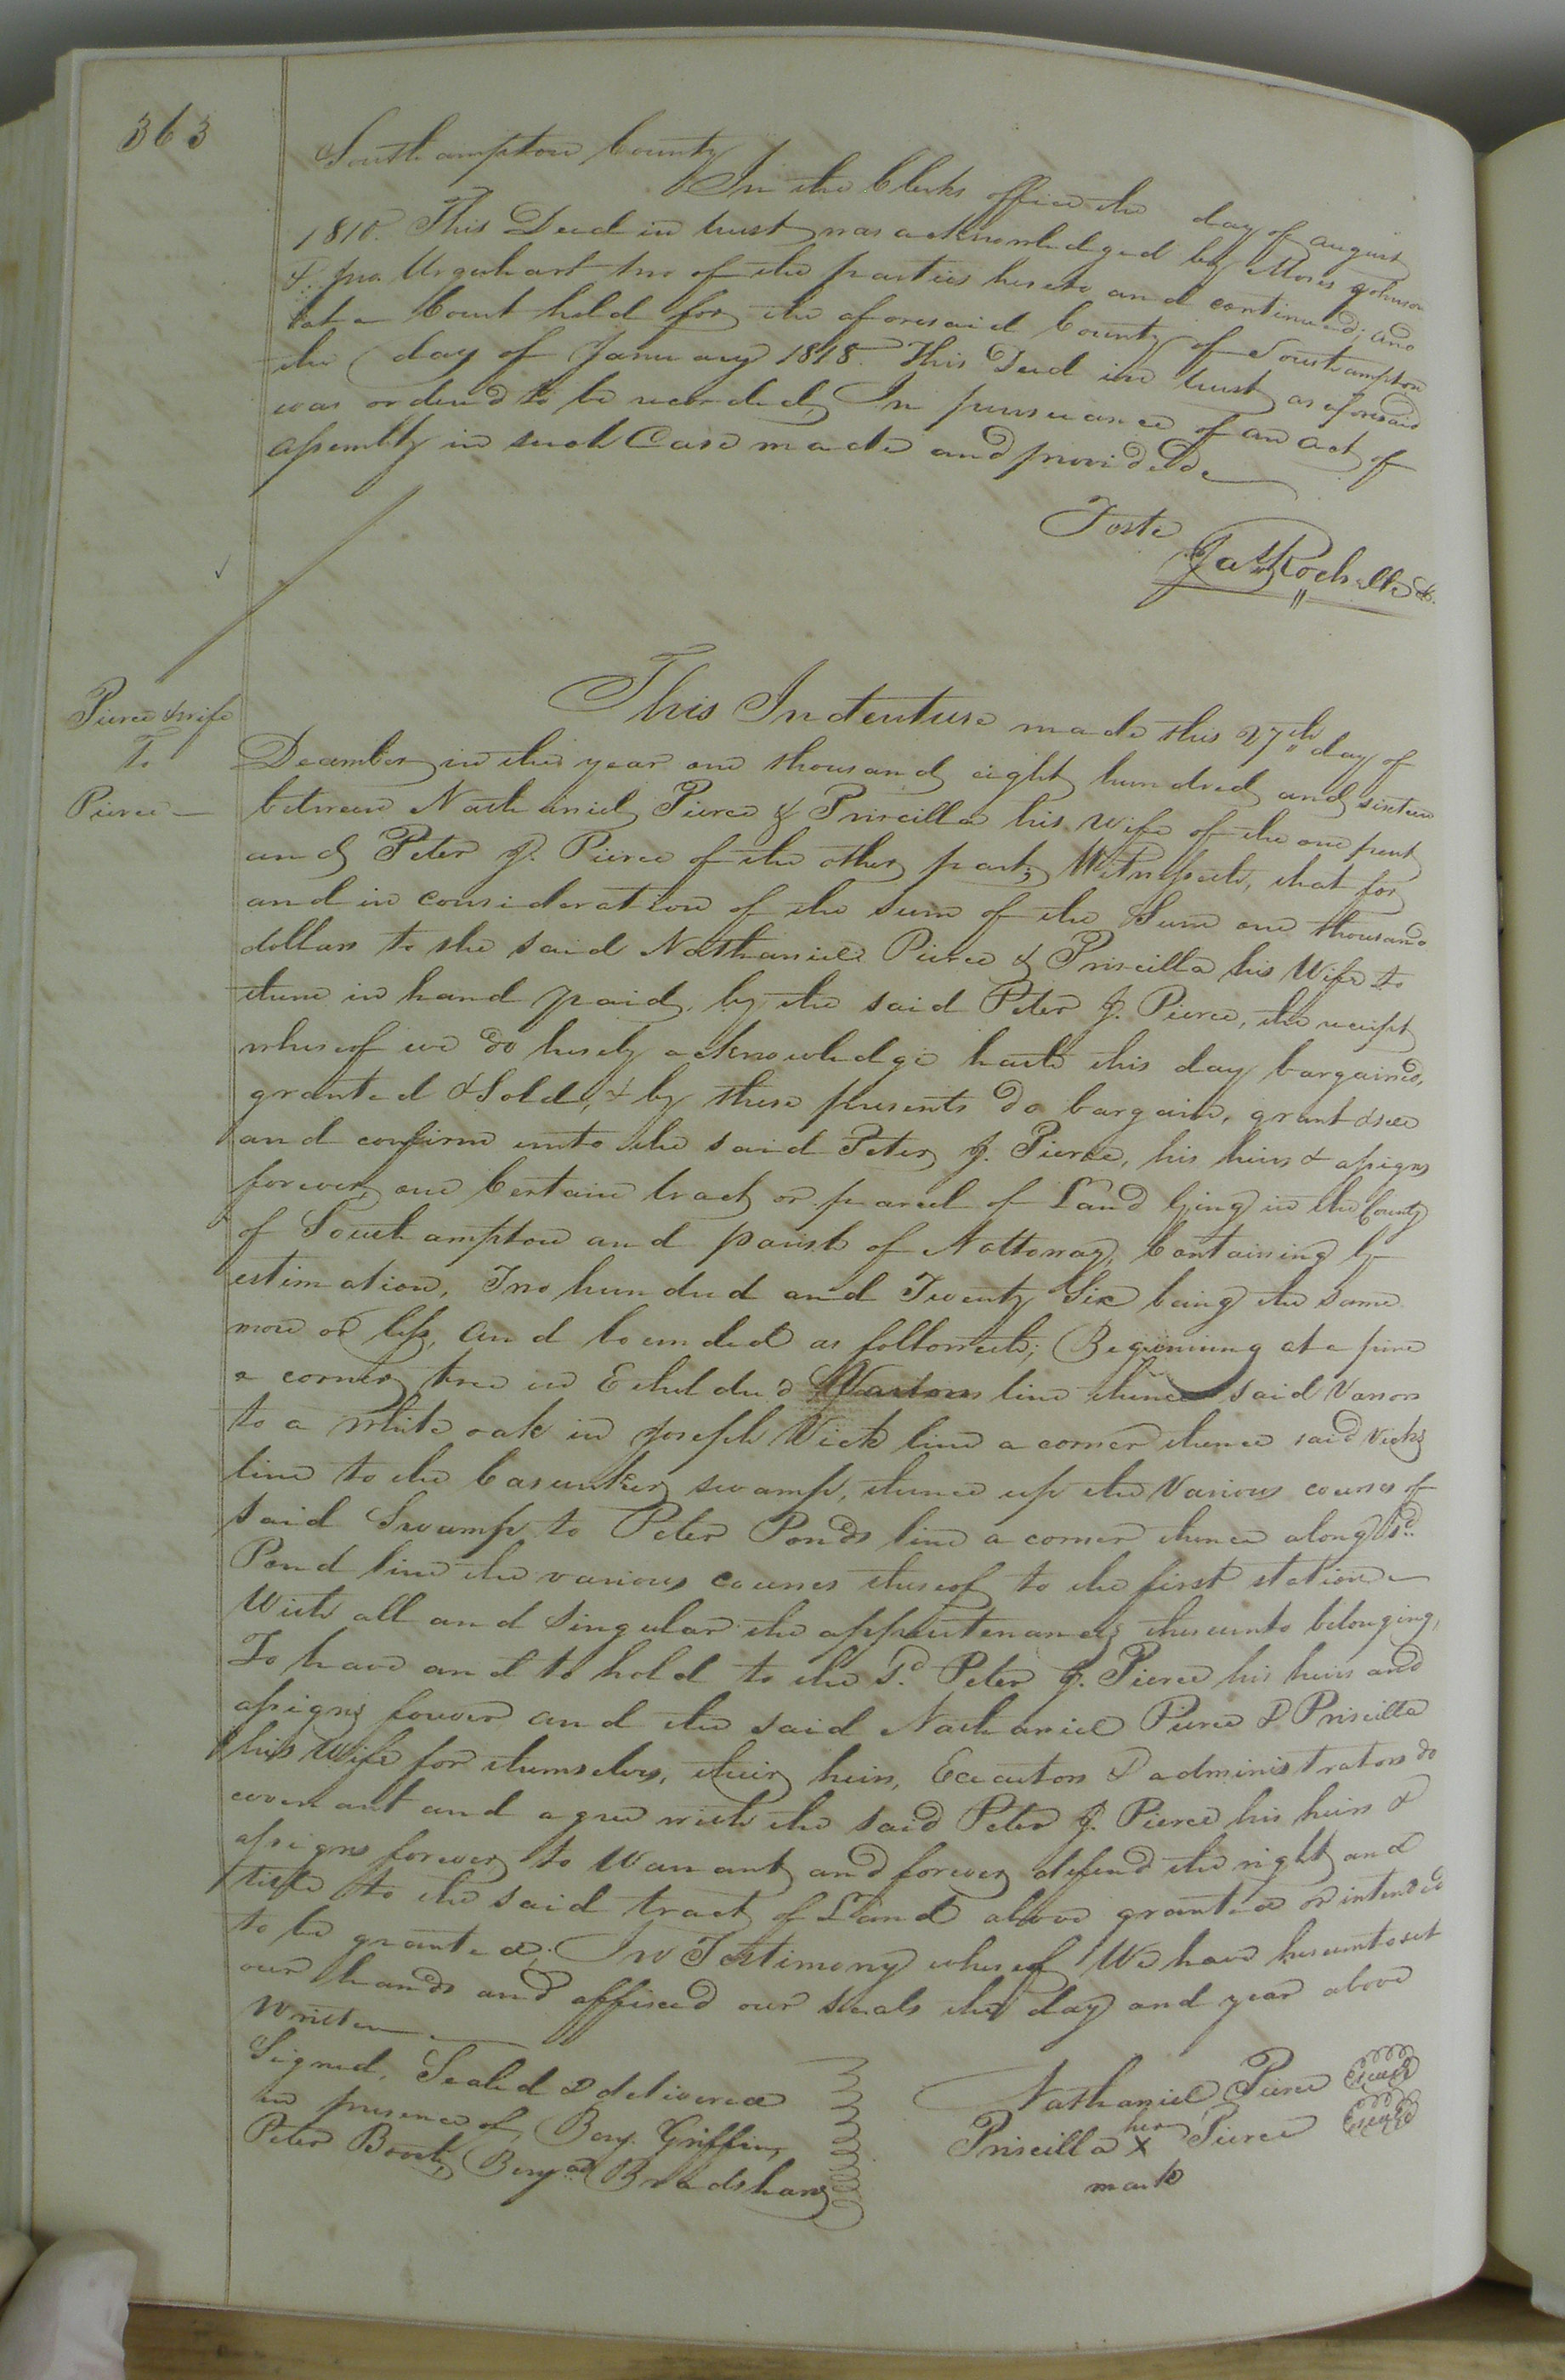 363
Southampton County
In the Clerks office the day of august
1810. This Deed in trust was acknowledged by Moses Johnson
& Jno. Urquhart two of the parties hereto and continued; and
at a Court held for the aforesaid County of Southampton
the day of January 1818. This Deed in trust as aforesaid
was ordered to be recorded, In pursuance of an act of
assembly in such Case made and provided
Teste
Jas Rochelle
Pierce & wife
To
Pierce
This Indenture made this 27th day of
December in the year one thousand eight hundred and sixteen
between Nathaniel Pierce & Priscilla his wife of the one part
and Peter J. Pierce of the other part; Witnesseth, that for
and in consideration of the sum of the Sum one thousand
dollars to the said Nathaniel Pierce & Priscilla his Wife to
them in hand paid, by the said Peter J. Pierce, the receipt
whereof we do hereby acknowledge hath this day bargained,
granted & Sold, & by these presents do bargain, grant & sell
and confirm unto the said Peter J. Pierce, his heirs & assigns
forever, one Certain tract or parcel of Land lying in the County
of Southampton and parish of Nottoway, Containing by
estimation, Two hundred and Twenty Six being the same
more or less, and bounded as followeth; Beginning at a pine
a corner tree in Etheldred line thence said Vasons
to a white oak in Joseph Vick line a corner thence said Vicks
line to the swamp, thence up the Various courses of
said Swamp to Peter Ponds line a corner thence along sd.
Pond line the various courses thereof to the first station
With all and Singular the appurtenances thereunto belonging,
To have and to hold to the Sd. Peter J. Pierce his heirs and
assigns forever and the said Nathaniel Pierce & Priscilla
his Wife for themselves, their heirs, Executors & administrators do
covenant and agree with the said Peter J. Pierce his heirs &
assigns forever to Warrant and forever defend the right and
title to the said tract of Land above granted or intended
to be granted; In Testimony whereof We have hereunto set
our hands and affixed our seals the day and year above
Written
Signed, Sealed & delivered
in presence of Benj. Griffin,
Peter Booth, Benjan Bradshaw
Nathaniel Pierce Seal
her
Priscilla X Pierce Seal
mark